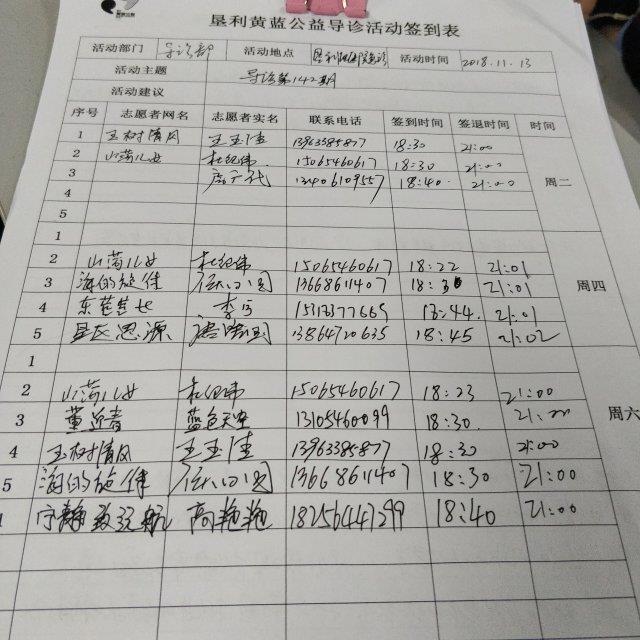 垦利黄蓝公益导诊活动签到表
活动部门 导诊部 活动地点 活动时间 2018.11.13
活动主题 导诊第142期
活动建议
序号 志愿者网名 志愿者实名 联系电话 签到时间 签退时间 时间
1 玉树清风 王玉佳 13963385877 18:30 21:00
2 山菊儿女 杜纪伟 15065460617 18:30 21:00
3 13406109557 18:40 21:00
周二
4
5
1
2 山菊儿女 杜纪伟 15065460617 18:22 21:01
3 13668611407 18:30 21:01
周四
4 李 15313377669 21:01
5 星辰思源 13864720635 18:45 21:02
1
2 山菊儿女 杜纪伟 15065460617 18:23 21:00
3 董近青 蓝色天空 13105460099 18:30
周六
4 玉树清风 王玉佳 13963385877 18:30 21:00
5 13668611407 18:30 21:00
宁静致远航 高艳艳 18256447299 18:40 21:00